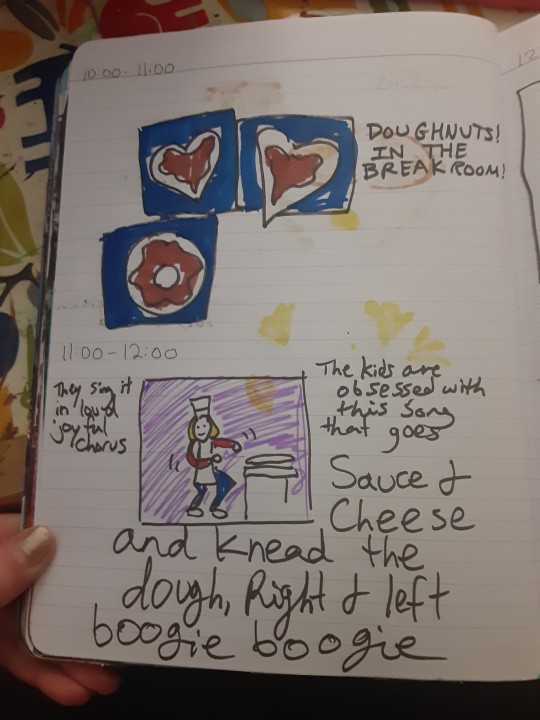 10:00-11:00
DOUGHNUTS!
IN THE
BREAK ROOM!
11:00-12:00
They sing it
in loud
joyful
chorus
The kids are
obsessed with
this song
that goes
Sauce &
Cheese
and knead the
dough, Right & left
boogie boogie
12